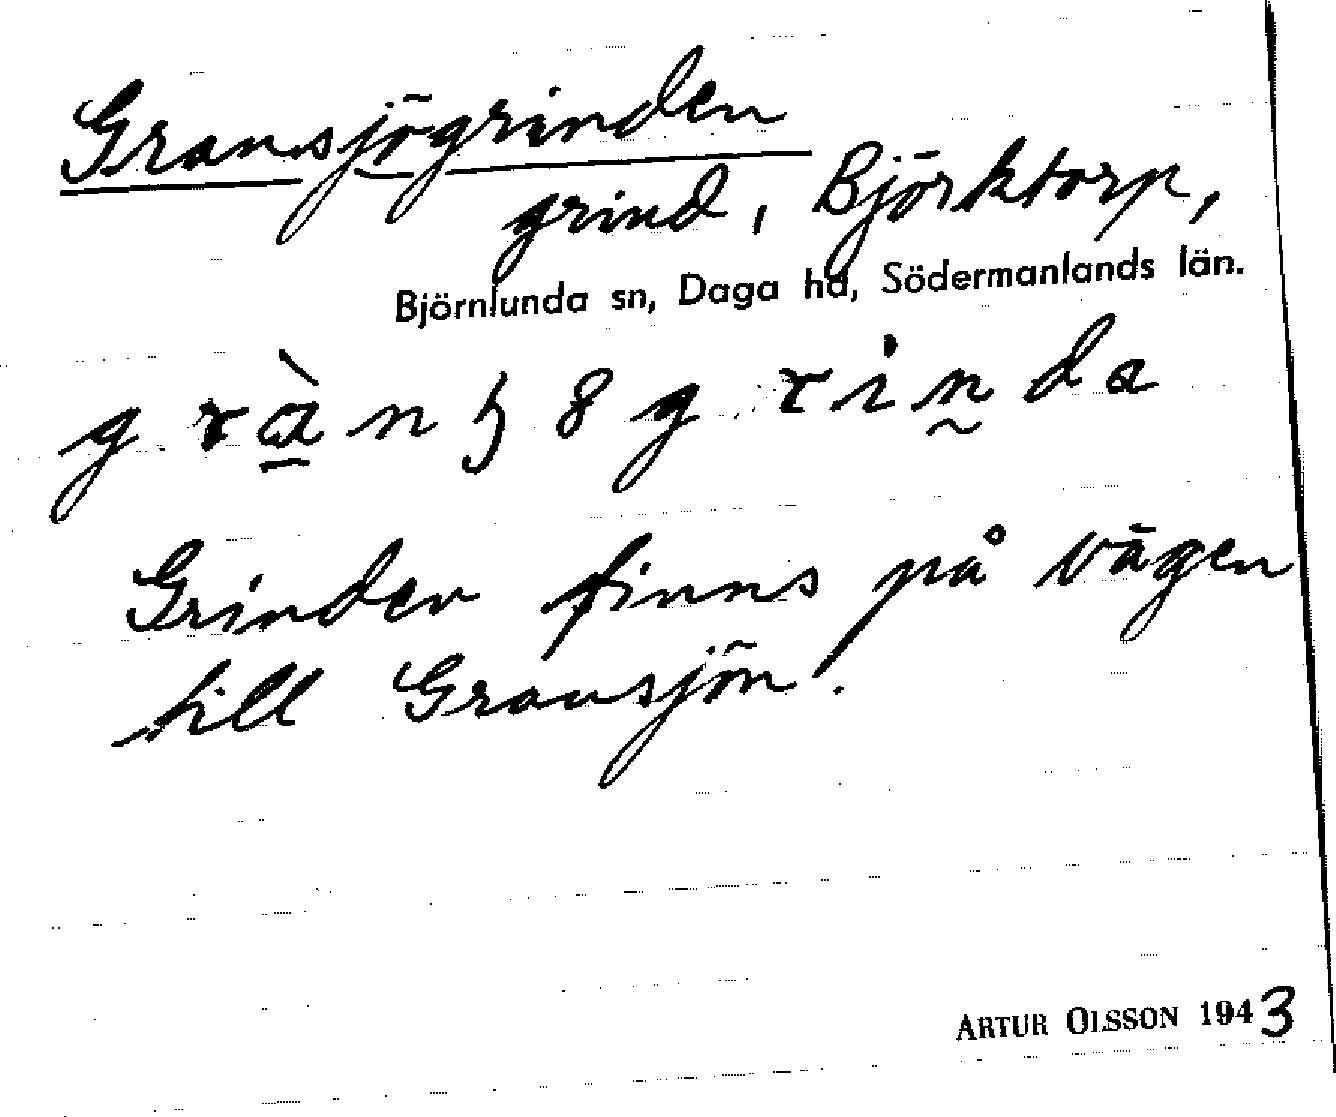 Gransjögrinden
grind, Björktorp,
Björnlunda sn, Daga hd, Södermanlands län.
Grinden finns på vägen
till Gransjön.
ARTUR OLSSON 1943